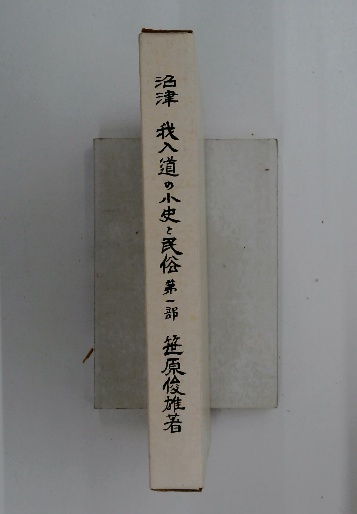 沼津 我入道の小史と民俗 第一部 笹原俊雄著